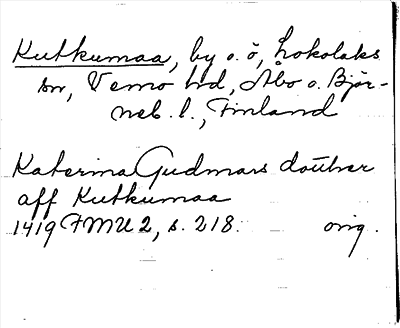 Kutkumaa, by o. ö, Lokolaks
sn, Vemo hd, Åbo o. Björ-
neb. l., Finland
Katerina Gudmars doùther
aff Kutkumaa
1419 FMU 2, s. 218. orig.